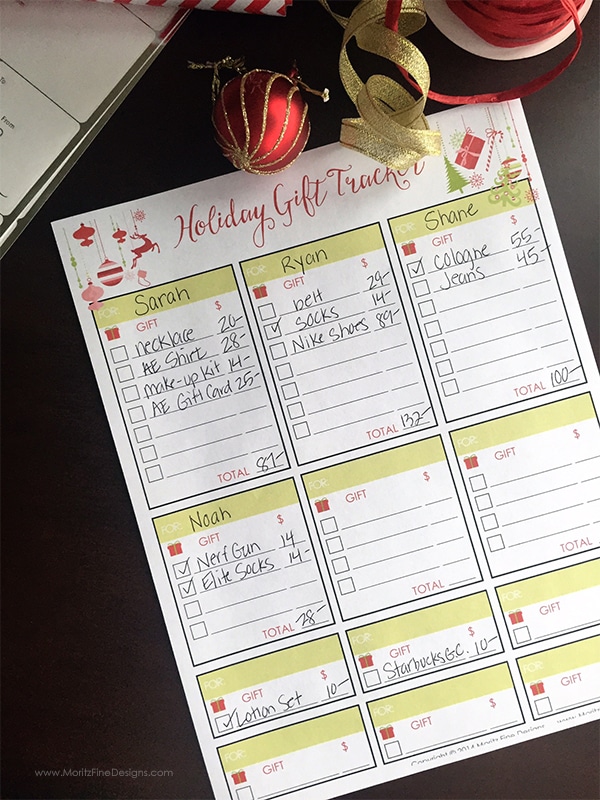 To:
From:
Holiday Gift Tracker
FOR: Sarah
GIFT $
necklace 20-
AE Shirt 28-
make-up kit 14-
AE Gift Card 25-
TOTAL 87-
FOR: Ryan
GIFT $
belt 29-
socks 14-
Nike Shoes 89-
TOTAL 132-
FOR: Shane
GIFT $
cologne 55-
Jeans 45-
TOTAL 100-
FOR: Noah
GIFT $
Nerf Gun 14
Elite Socks 14-
TOTAL 28-
FOR:
GIFT $
TOTAL
FOR:
GIFT $
TOTAL
FOR:
GIFT $
Lotion Set 10-
FOR:
GIFT $
Starbucks G.C. 10-
FOR:
GIFT
FOR:
GIFT $
FOR:
GIFT $
FOR:
GIFT
Copyright © 2014 Moritz Fine Designs
www.MoritzFineDesigns.com